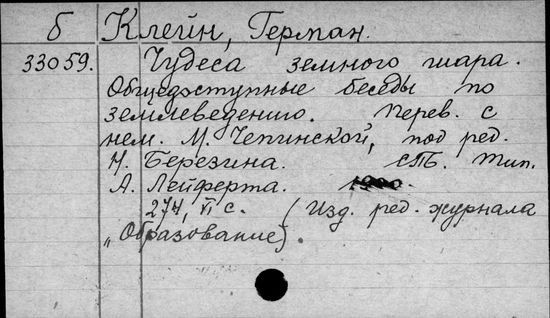 б Клейн, Герман.
33059. Чудеса земного шара.
Общедоступные беседы по
землеведению. Перев. с
нем. М. Чепинской, под ред.
Н. Березина. СПб. Тип.
А. Лейферта. 1900.
274, VI с. (Изд. ред. журнала
„Образование).